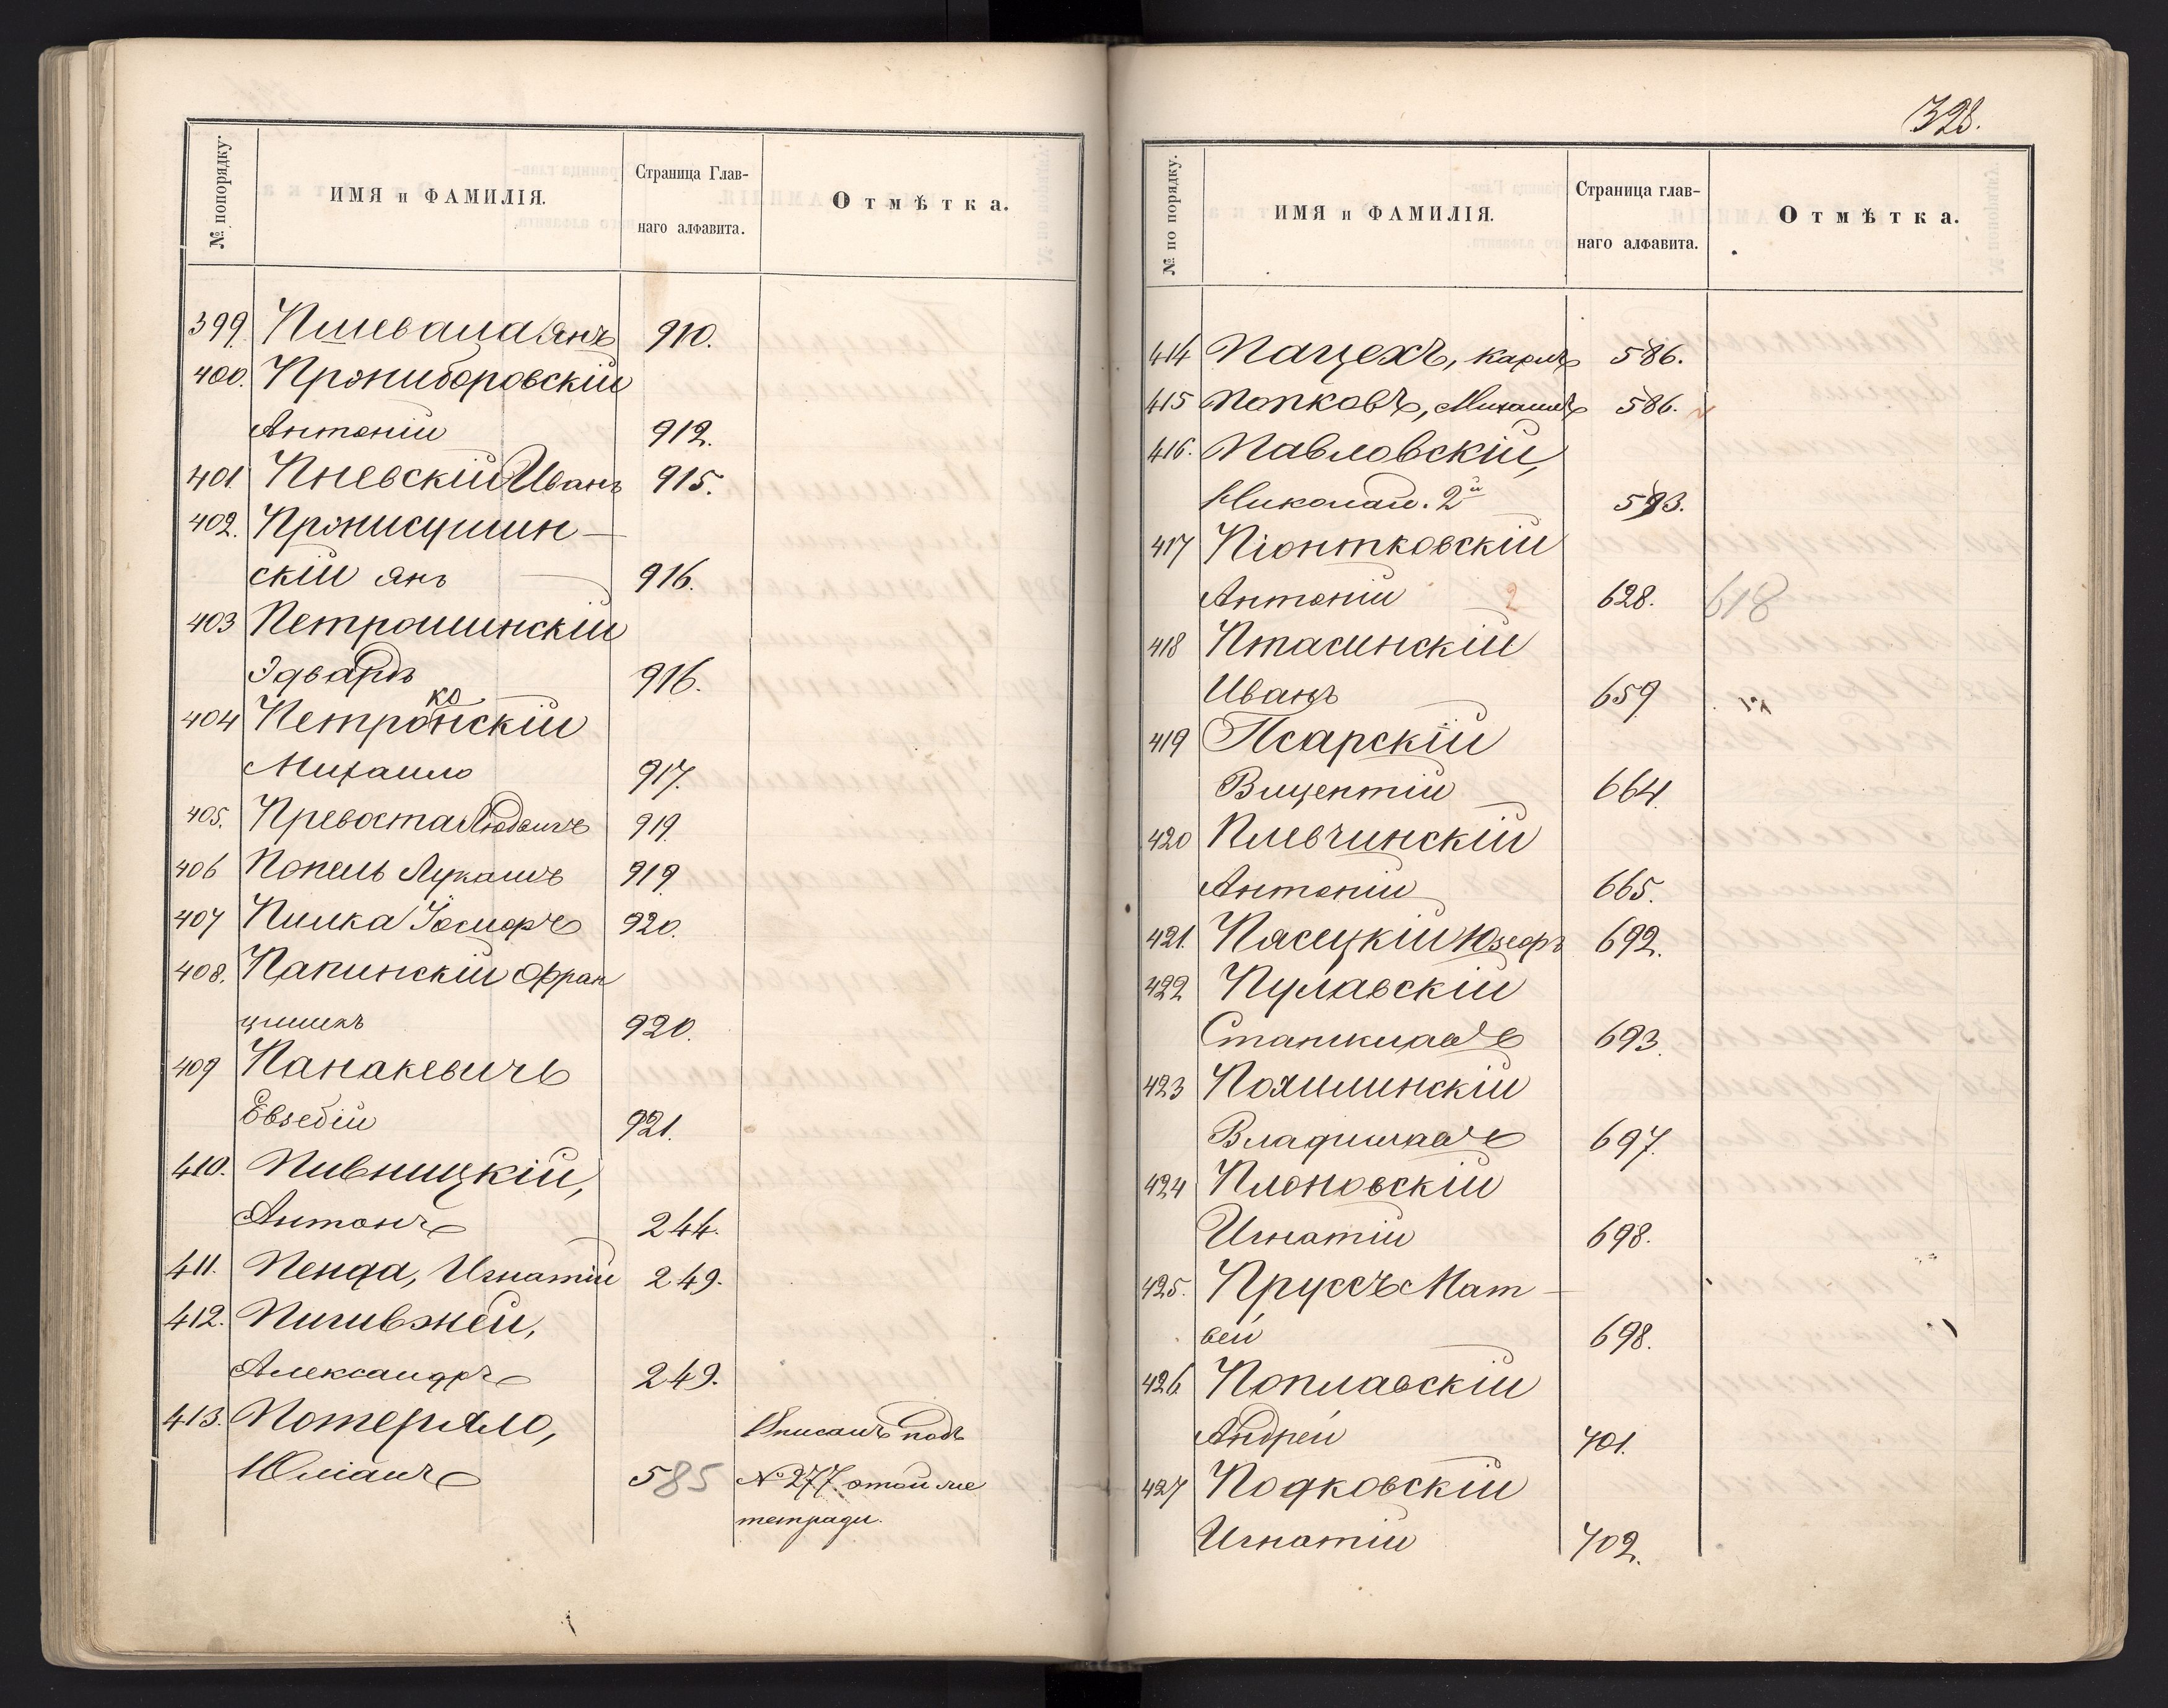 № попорядку.
ИМЯ и ФАМИЛІЯ.
Страница Глав-
наго алфавита.
Отмѣтка.
399. Пшеваца Янъ 910.
400. Пржиборовскій
Антоній 912.
401 Пневскій Иванъ 915.
402. Пржисушин-
скій Янъ 916.
403 Петрошинскій
Эдвардъ 916.
ко
404 Петронскій
Михаило 917.
405. Превоста Людвигъ 919.
406 Попель Лукашъ 919.
407 Пилка Іосифъ 920.
408. Папинскій Фран
цишекъ 920.
409 Панакевичъ
Евзебій 921.
410. Пивницкій,
Антонъ 244.
411. Пенда, Игнатій 249.
412. Пигивжей,
Александръ 249.
413. Потеряло, Вписанъ подъ
Юліанъ 585 № 277. этой же
тетради.
328.
№ по порядку.
ИМЯ и ФАМИЛІЯ.
Страница глав-
наго алфавита.
Отмѣтка.
414 Пацехъ, Карлъ 586.
415 Попковъ, Михаилъ 586.
416. Павловскій,
Николай. 2й 593.
417 Піонтковскій
Антоній 2 628. 618
418 Птасинскій
Иванъ 659
419 Псарскій
Вицентій 664.
420 Плевчинскій
Антоній 665.
421. Пясецкій Юзефъ 692.
422 Пулавскій
Станиславъ 693.
423 Похилинскій
Владиславъ 697.
424 Плоновскій
Игнатій 698.
425. Пруссъ Мат-
вей 698.
426 Поплавскій
Андрей 701.
427 Подковскій
Игнатій 702.